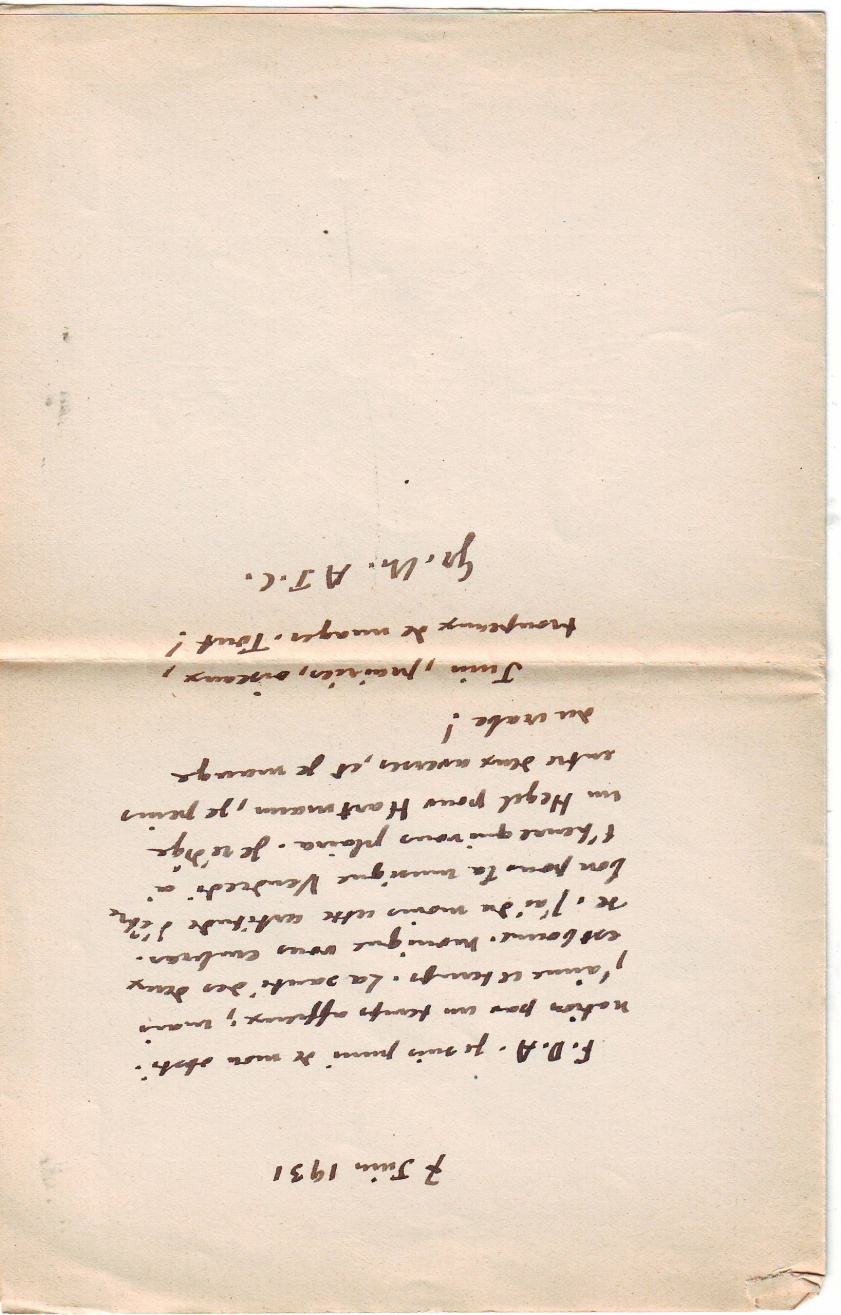 7 Juin 1931
F.D.A. Je suis puni de mon obsti-
nation par un temps affreux ; mais
j'aime ce temps. La santé des deux
est bonne. Monique vous embras-
se. J'ai du moins cette certitude d'être
bon pour la musique Vendredi à
l'heure qui vous plaira. Je rédige
un Hegel pour Hartmann, je peins
entre deux averses, et je mange
du crabe !
Juin, prairies, oiseaux,
troupeaux de nuages. Tout !
A J.C.